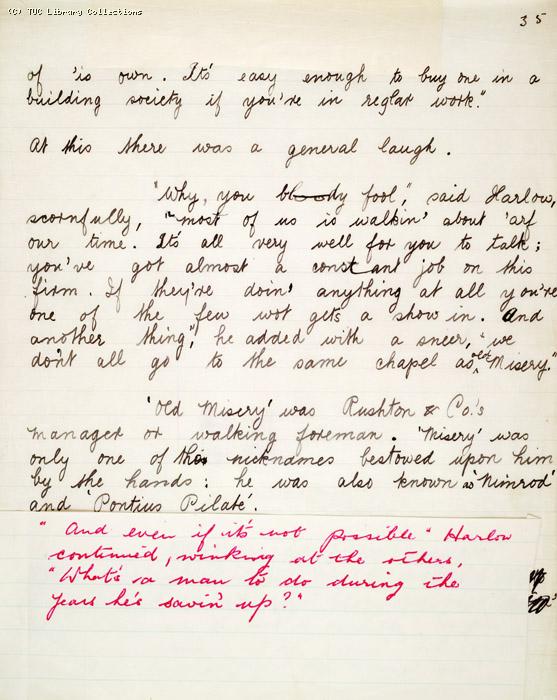 (C) TUC Library Collections
35
of 'is own. It's easy enough to buy one in a
building society if you're in reglar work."
At this there was a general laugh.
"Why, you bloody fool", said Harlow,
scornfully, "most of us is walkin' about 'arf
our time. It's all very well for you to talk;
you've got almost a constant job on this
firm. If they're doin' anything at all you're
one of the few wot gets a show in. And
another thing", he added with a sneer, "we
don't all go to the same chapel as old Misery."
'Old Misery' was Rushton & Co.'s
manager or walking foreman. 'Misery' was
only one of the nicknames bestowed upon him
by the hands: he was also known as 'Nimrod'
and 'Pontius Pilate'.
"And even if it's not possible" Harlow
continued, winking at the others,
"What's a man to do during the
years he's savin' up?"